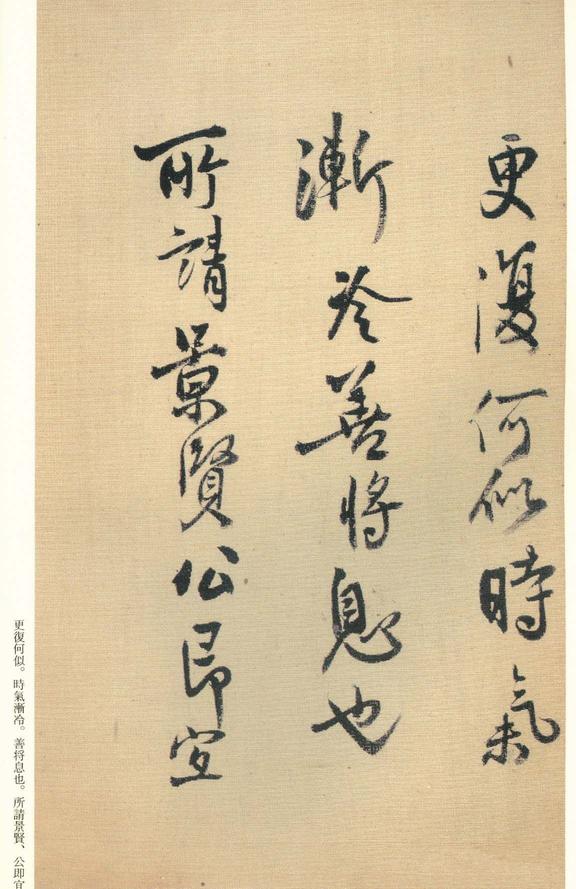 更復何似時氣
漸冷善將息也
所請景賢公即宜
更復何似。時氣漸冷。善将息也。所請景賢、公即宜